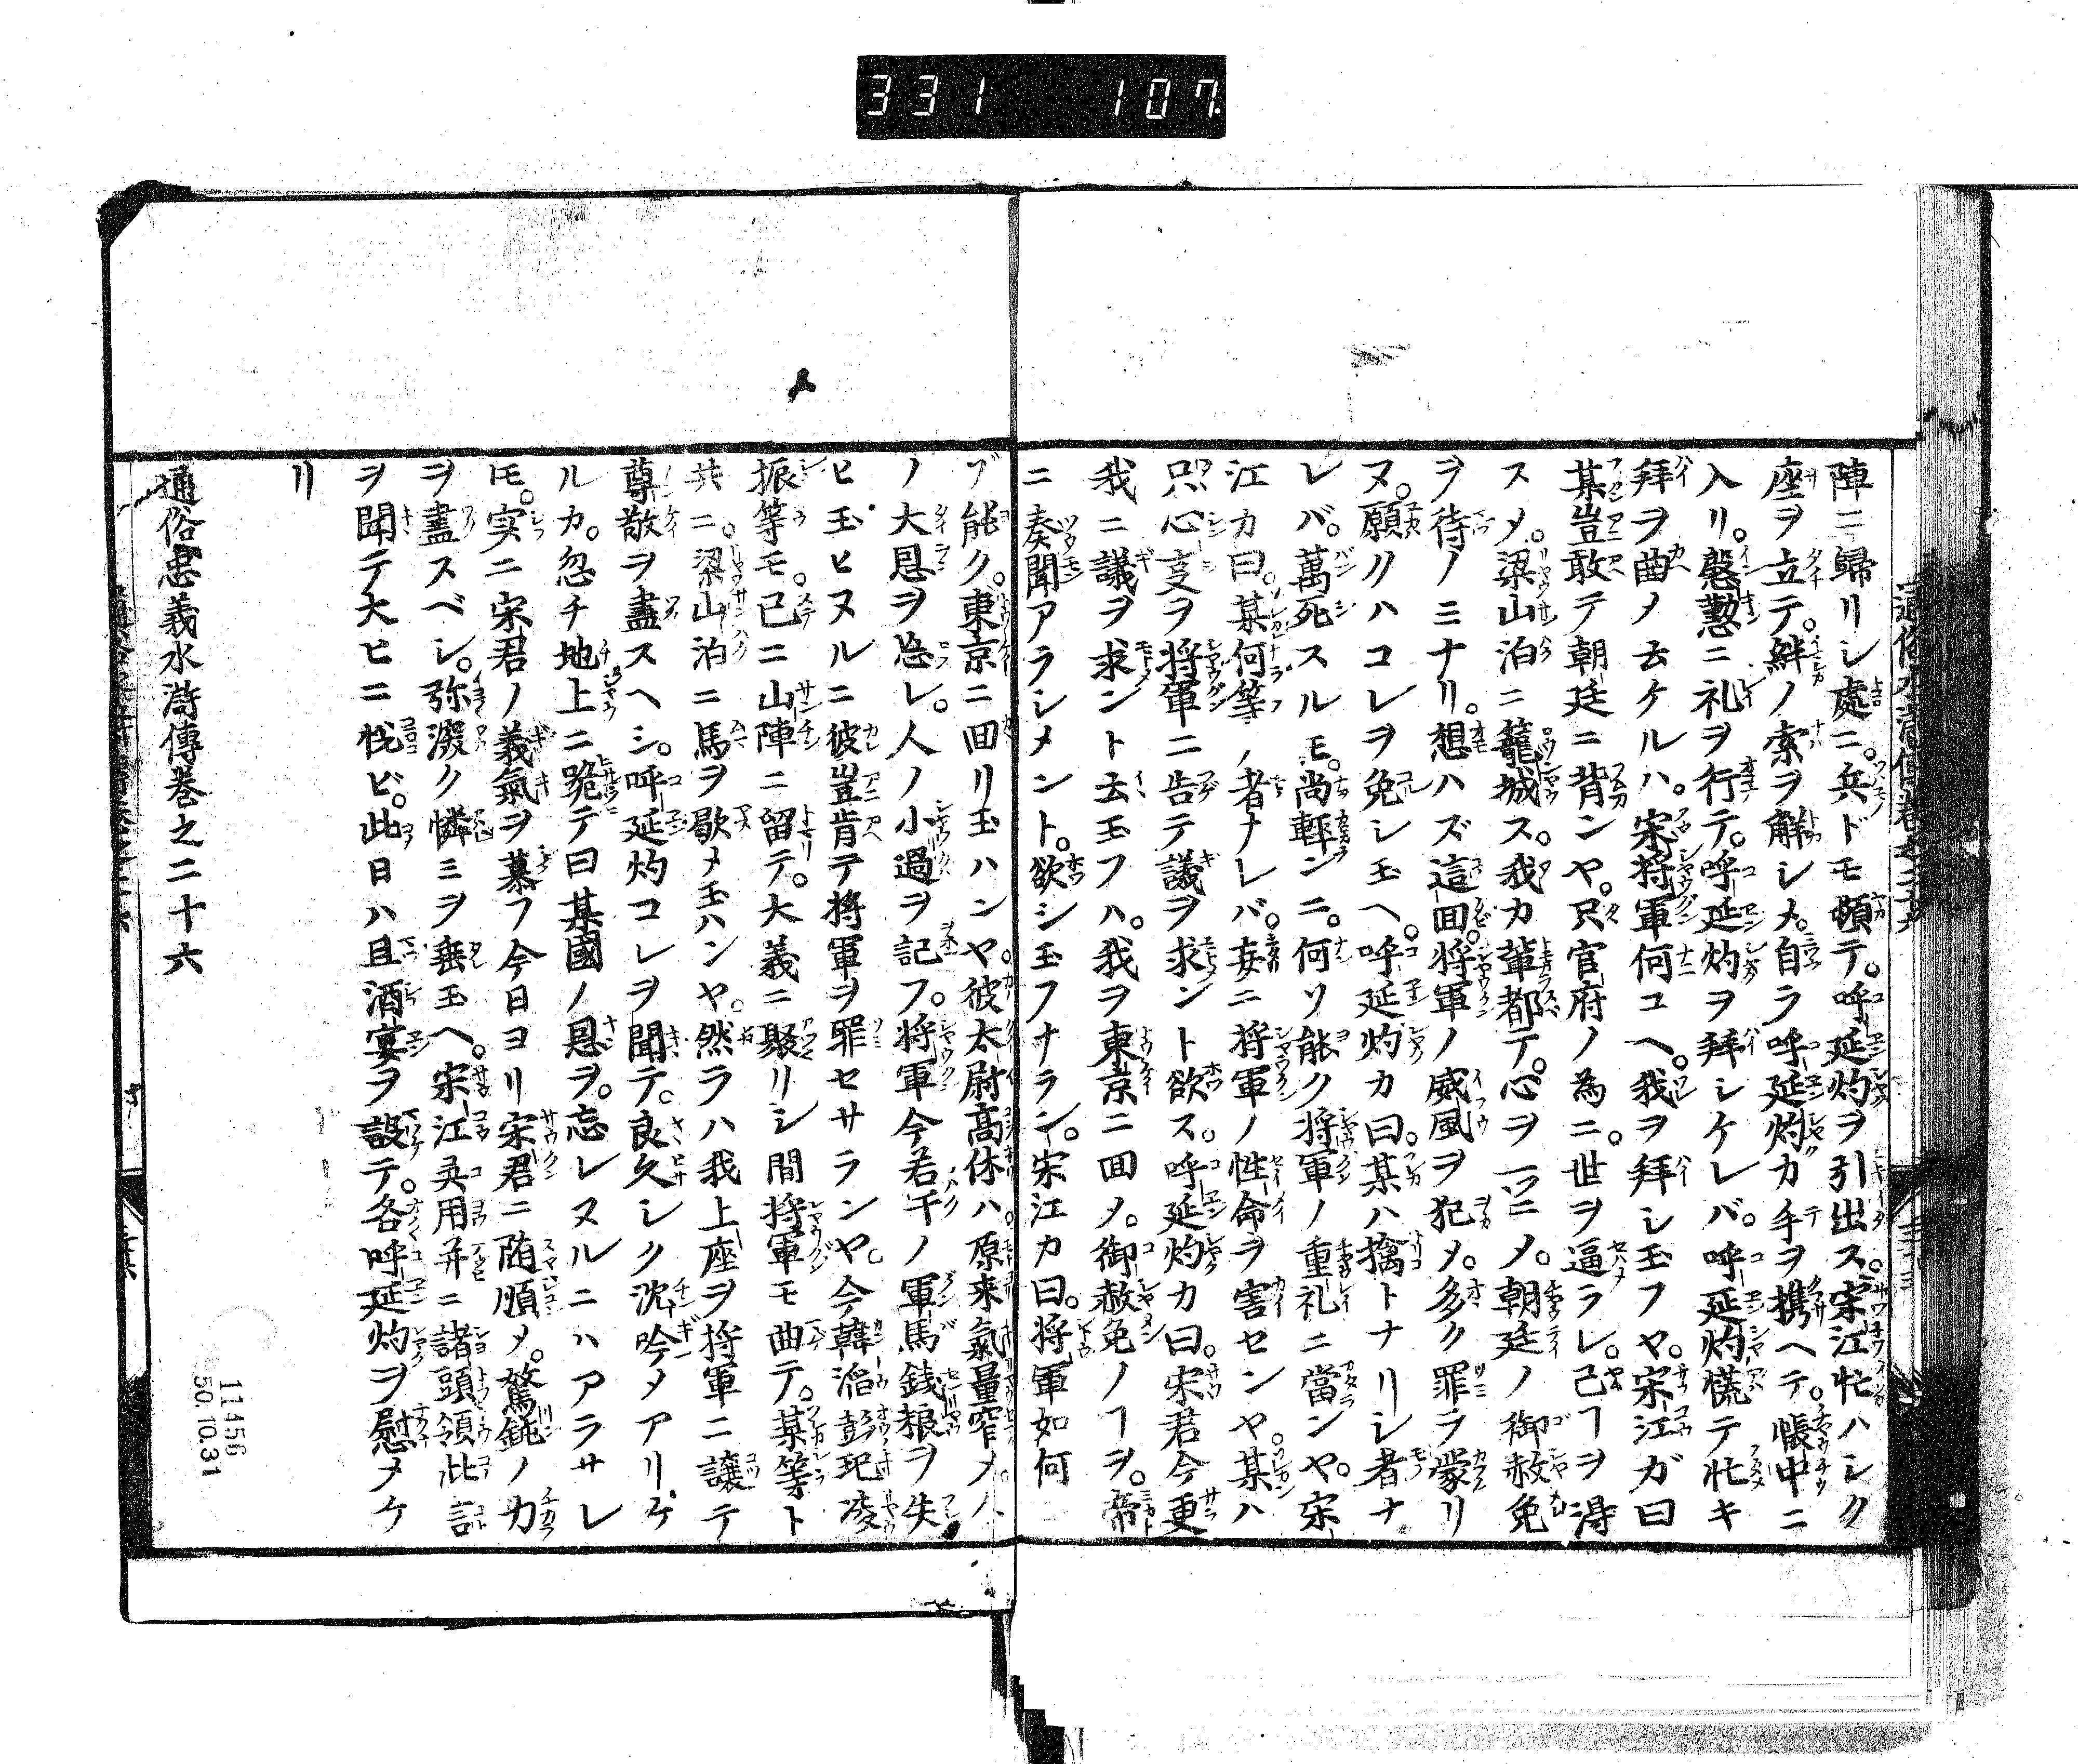 331 107
陣ニ歸リシ處ニ。兵ドモ頓テ。呼延灼ヲ引出ス。宋江忙ハシク
座ヲ立テ。絆ノ索ヲ解シメ。自ラ呼延灼カ手ヲ携ヘテ。帳中ニ
入リ。慇懃ニ礼ヲ行テ。呼延灼ヲ拜シケレバ。呼延灼慌テ忙キ
拜ヲ曲メ云ケルハ。宋將軍何コヘ。我ヲ拜シ玉フヤ。宋江ガ曰
某豈敢テ朝廷ニ背ンヤ。只官府ノ為ニ。世ヲ逼ラレ。已ヿヲ得
スメ。梁山泊ニ籠城ス。我カ輩都テ。心ヲ一ニメ。朝廷ノ御赦免
ヲ待ノミナリ。想ハズ這回。將軍ノ威風ヲ犯メ。多ク罪ラ蒙リ
ヌ。願クハコレヲ免シ玉ヘ。呼延灼カ曰。某ハ擒トナリシ者ナ
レバ。萬死スルモ。尚輕ンニ。何ソ能ク將軍ノ重礼ニ當ンヤ。宋
江カ曰。某何等ノ者ナレバ。妄ニ將軍ノ性命ヲ害センヤ。某ハ
只心支ヲ將軍ニ告テ議ヲ求ント欲ス。呼延灼カ曰。宋君今更
我ニ議ヲ求ント云玉フハ。我ヲ東京ニ回メ。御赦免ノヿヲ。帝
ニ奏聞アラシメント。欲シ玉フナラン。宋江カ曰。將軍如何
ブ能ク。東京ニ回リ玉ハンヤ。彼太尉高俅ハ。原来氣量窄メ。人
ノ大恩ヲ忘レ。人ノ小過ヲ記フ。將軍今若干ノ軍馬錢粮ヲ失
ヒ玉ヒヌルニ彼豈肯テ將軍ヲ罪セサランヤ。今韓滔彭玘凌
振等モ。已ニ山陣ニ留テ。大義ニ聚リシ間將軍モ曲テ。某等ト
共ニ。梁山泊ニ馬ヲ歇メ玉ハンヤ。然ラハ我上座ヲ將軍ニ讓テ
尊敬ヲ盡スヘシ。呼延灼コレヲ聞テ。良久シク沈吟メアリケ
ルカ。忽チ地上ニ跪テ曰某國ノ恩ヲ。忘レヌルニハアラサレ
𪜈。実ニ宋君ノ義氣ヲ慕フ今日ヨリ宋君ニ随順メ。駑鈍ノ力
ヲ盡スベシ。弥深ク憐ミヲ垂玉ヘ。宋江呉用并ニ諸頭領此言
ヲ聞テ大ヒニ悦ビ。此日ハ且酒宴ヲ設テ。各呼延灼ヲ慰メケ
リ
通俗忠義水滸傳巻之二十六
11456
50.10.31